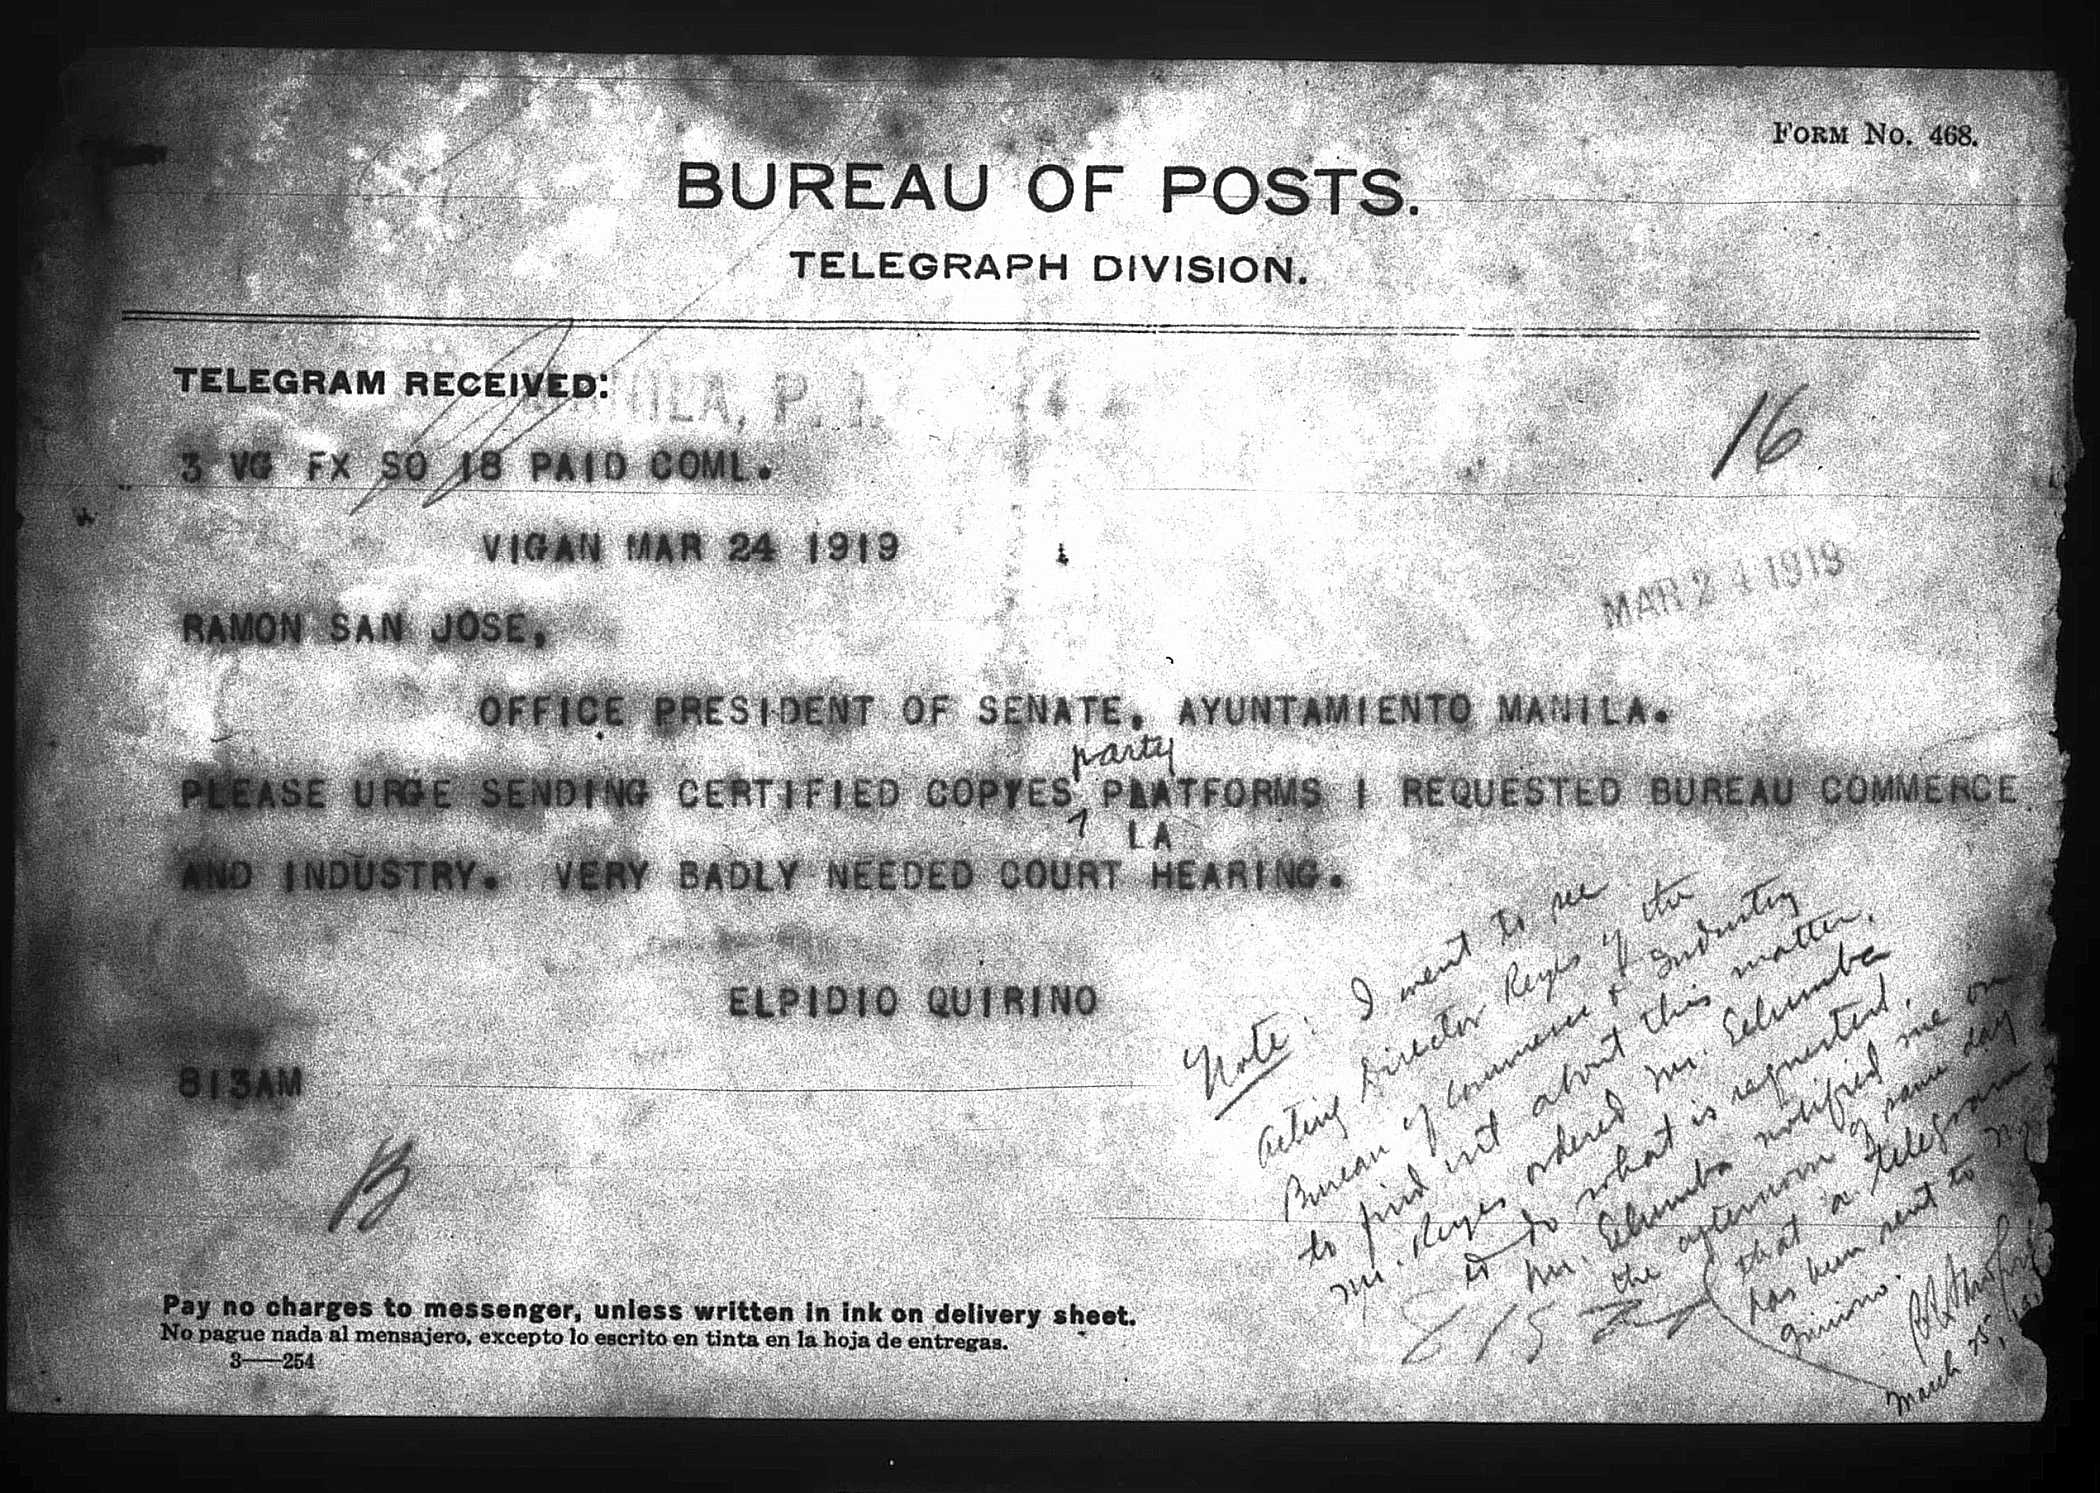 FORM No. 468.
BUREAU OF POSTS.
TELEGRAPH DIVISION.
TELEGRAM RECEIVED:
MANILA, P. I.
16
3 VG FX SO 18 PAID COML.
VIGAN MAR 24 1919
MAR 24 1919
RAMON SAN JOSE,
OFFICE PRESIDENT OF SENATE, AYUNTAMIENTO MANILA.
party
PLEASE URGE SENDING CERTIFIED COPYES PLATFORMS I REQUESTED BUREAU COMMERCE
LA
AND INDUSTRY. VERY BADLY NEEDED COURT HEARING.
ELPIDIO QUIRINO
813AM
B
Note: I went to see
Acting Director Reyes of the
Bureau of Commerce & Industry
to find out about this matter.
Mr. Reyes ordered Mr.
to do what is requested.
Mr. notified me on
the afternoon of same day
that a telegram
has been sent to Mr.
Quirino.
March 25, 191
Pay no charges to messenger, unless written in ink on delivery sheet.
No pague nada al mensajero, excepto lo escrito en tinta en la hoja de entregas.
3—254